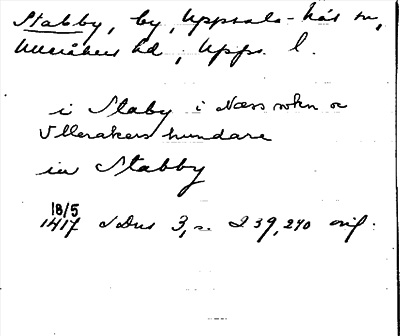 Stabby, by, Uppsala-Näs sn,
Ulleråkers hd, Upps. l.
i Staby i Næss sokn oc
Vllerakers hundare
in Stabby
18/5
1417 SDns 3, s. 239, 240 orig.